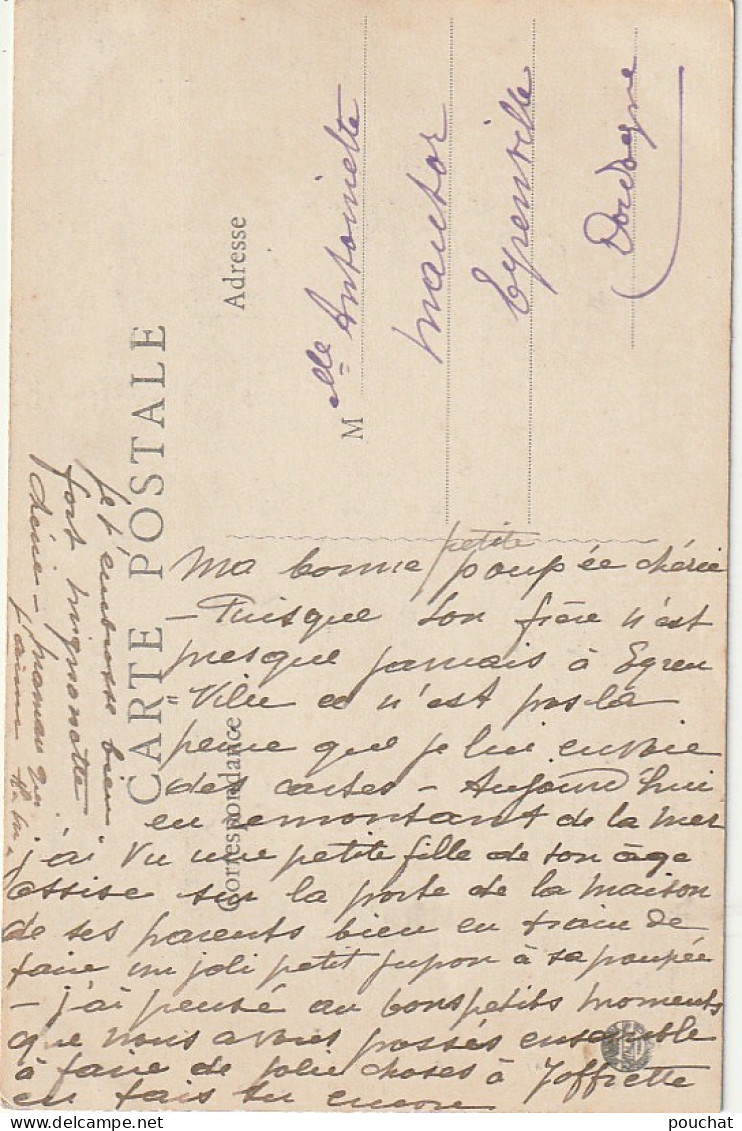 CARTE POSTALE
Correspondance
Adresse
M elle Antoinette
Mautor
Eyrenville
Dordogne
Ma bonne petite poupée chérie
- Puisque ton frère n'est
presque jamais à Eyren
= Ville ce n'est pas la
peine que je lui envoie
des cartes - Aujourd'hui
en remontant de la mer
j'ai vu une petite fille de ton âge
assise sur la porte de la maison
de ses parents bien en train de
faire un joli petit jupon à sa poupée
- j'ai pensé au bons petits moments
que nous avons passés ensemble
à faire de jolie choses à Joffrette
en fais tu encore
je t'embrasse bien
fort mignonette
chérie - maman qui
t'aime
pouchat